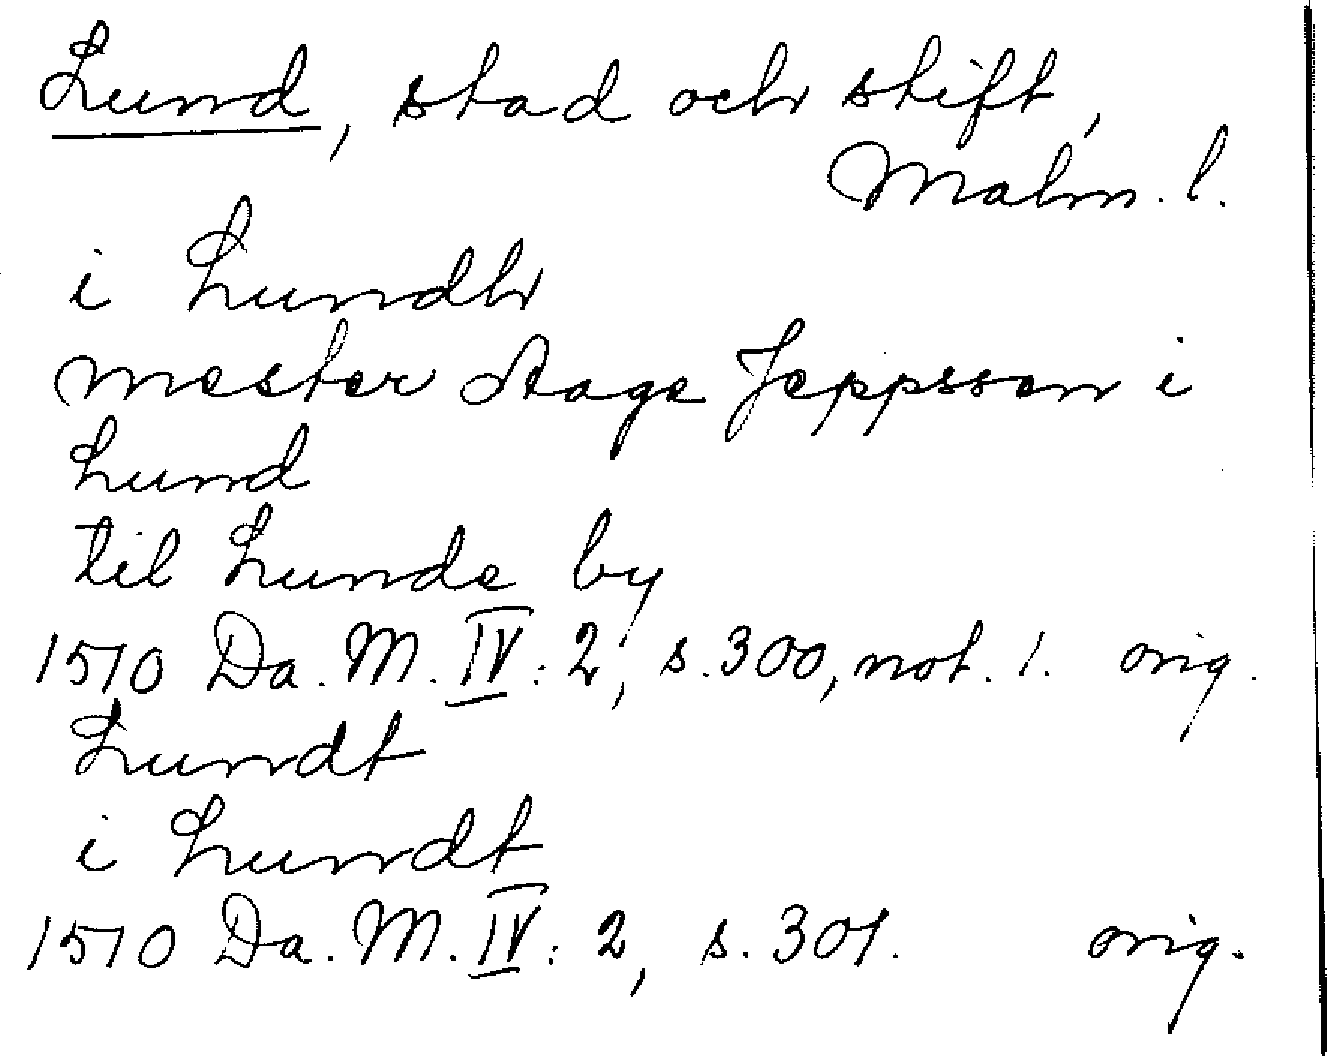 Lund, stad och stift,
Malm. l.
i Lundh
mester Aage Jeppsson i
Lund
til Lunde by
1510 Da. M. IV: 2, s. 300, not. 1. orig.
Lundt
i Lundt
1510 Da. M. IV: 2, s. 301. orig.